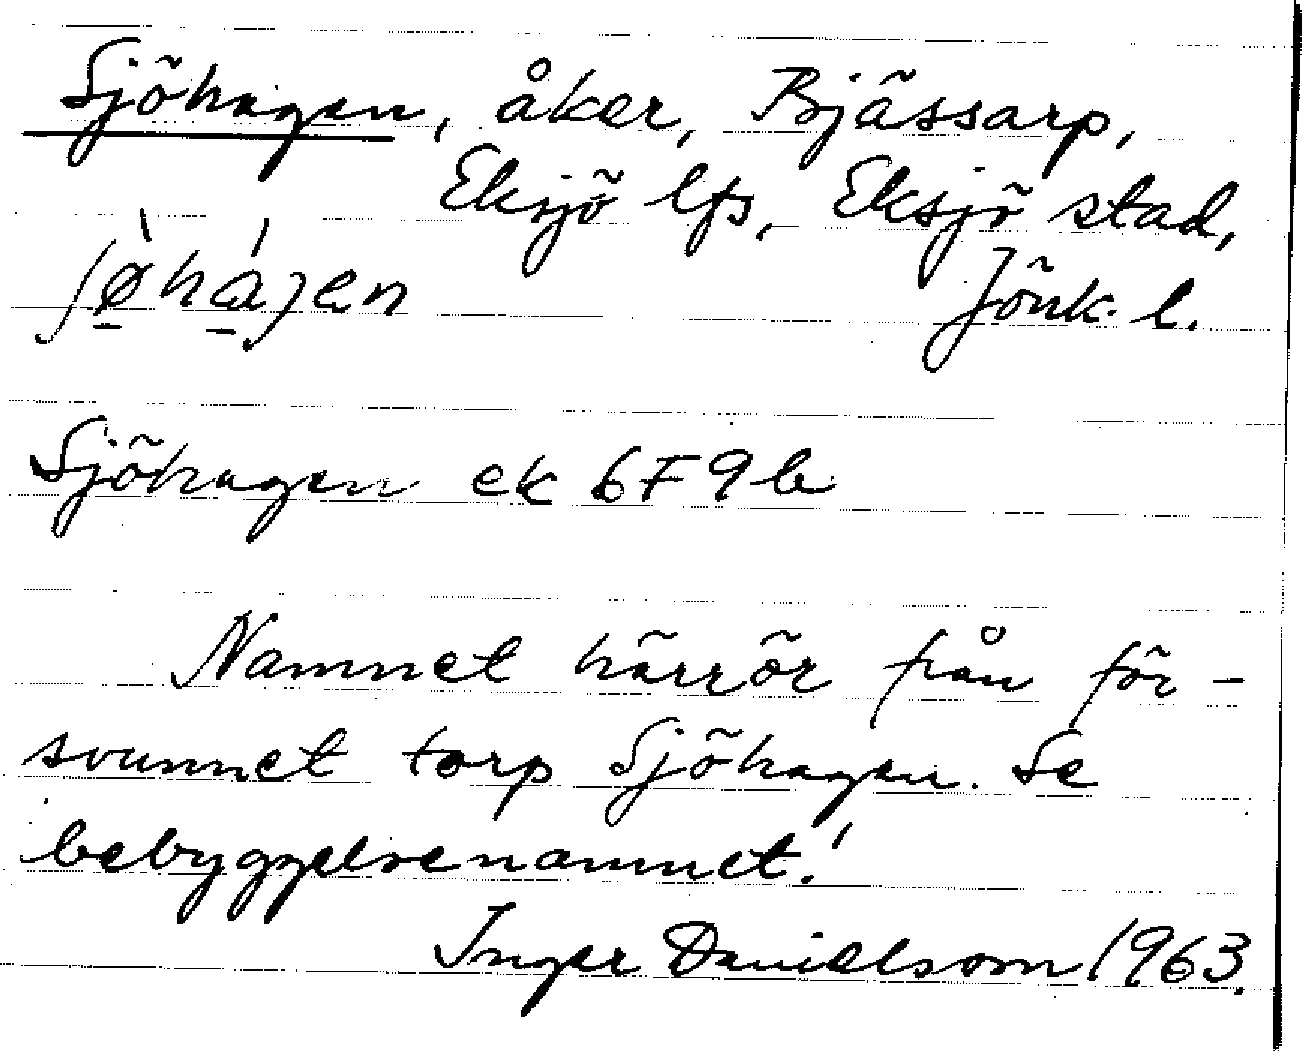 Sjöhagen, åker, Bjässarp,
Eksjö lfs, Eksjö stad,
ʃø̠̀há̠jen Jönk. l.
Sjöhagen ek 6F9b
Namnet härrör från för-
svunnet torp Sjöhagen. Se
bebyggelsenamnet!
Inger Danielsson 1963.